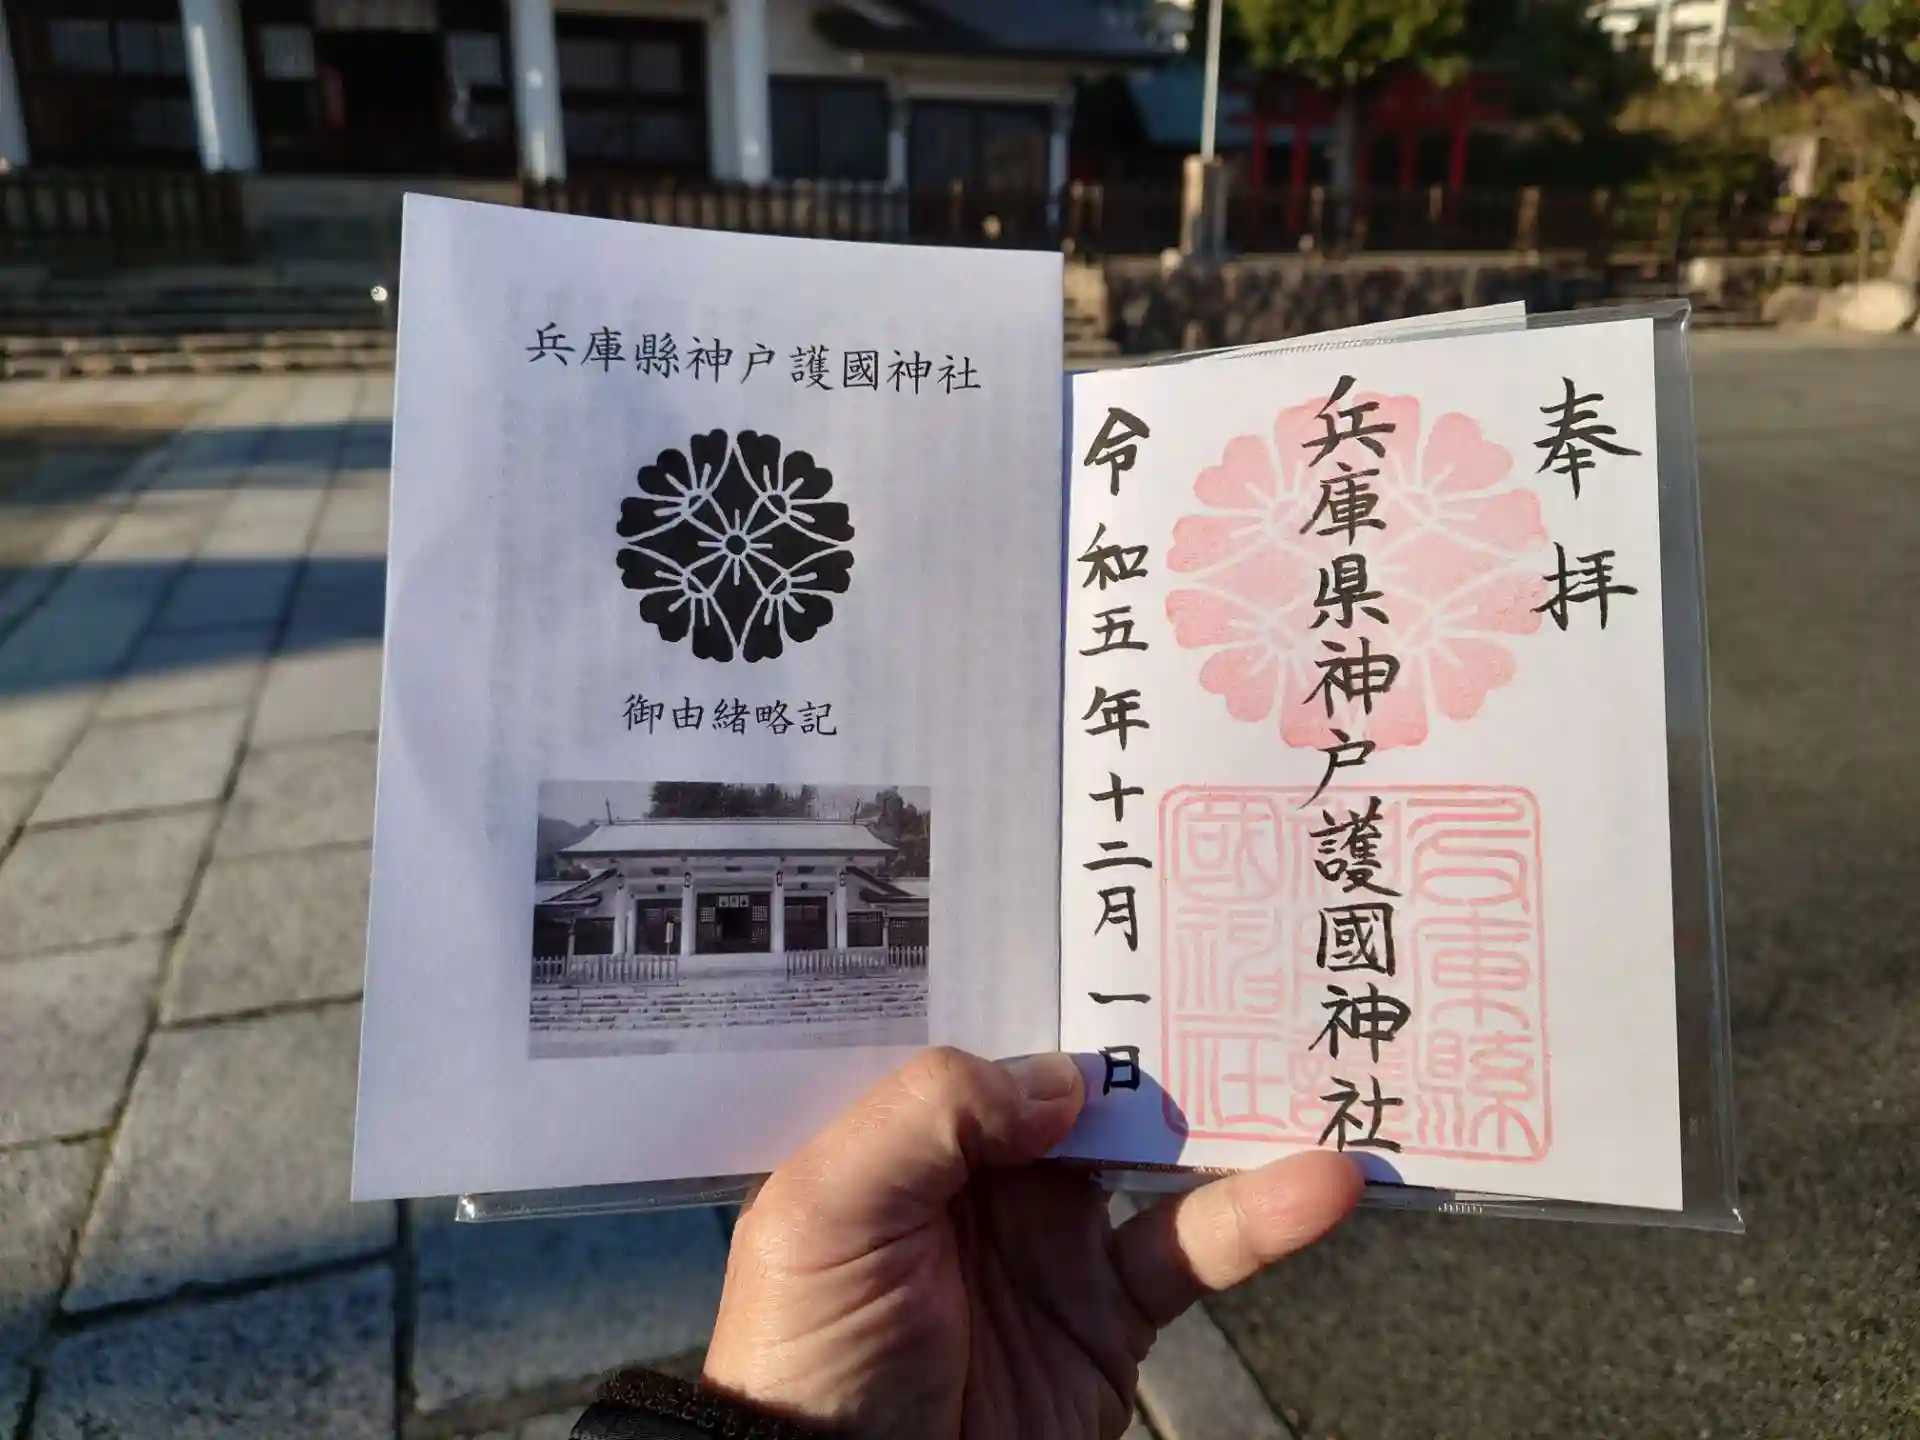 兵庫縣神戸護國神社
御由緒略記
奉拝
兵庫県神戸護國神社
令和五年十二月一日
兵庫縣
神戸護
國神社